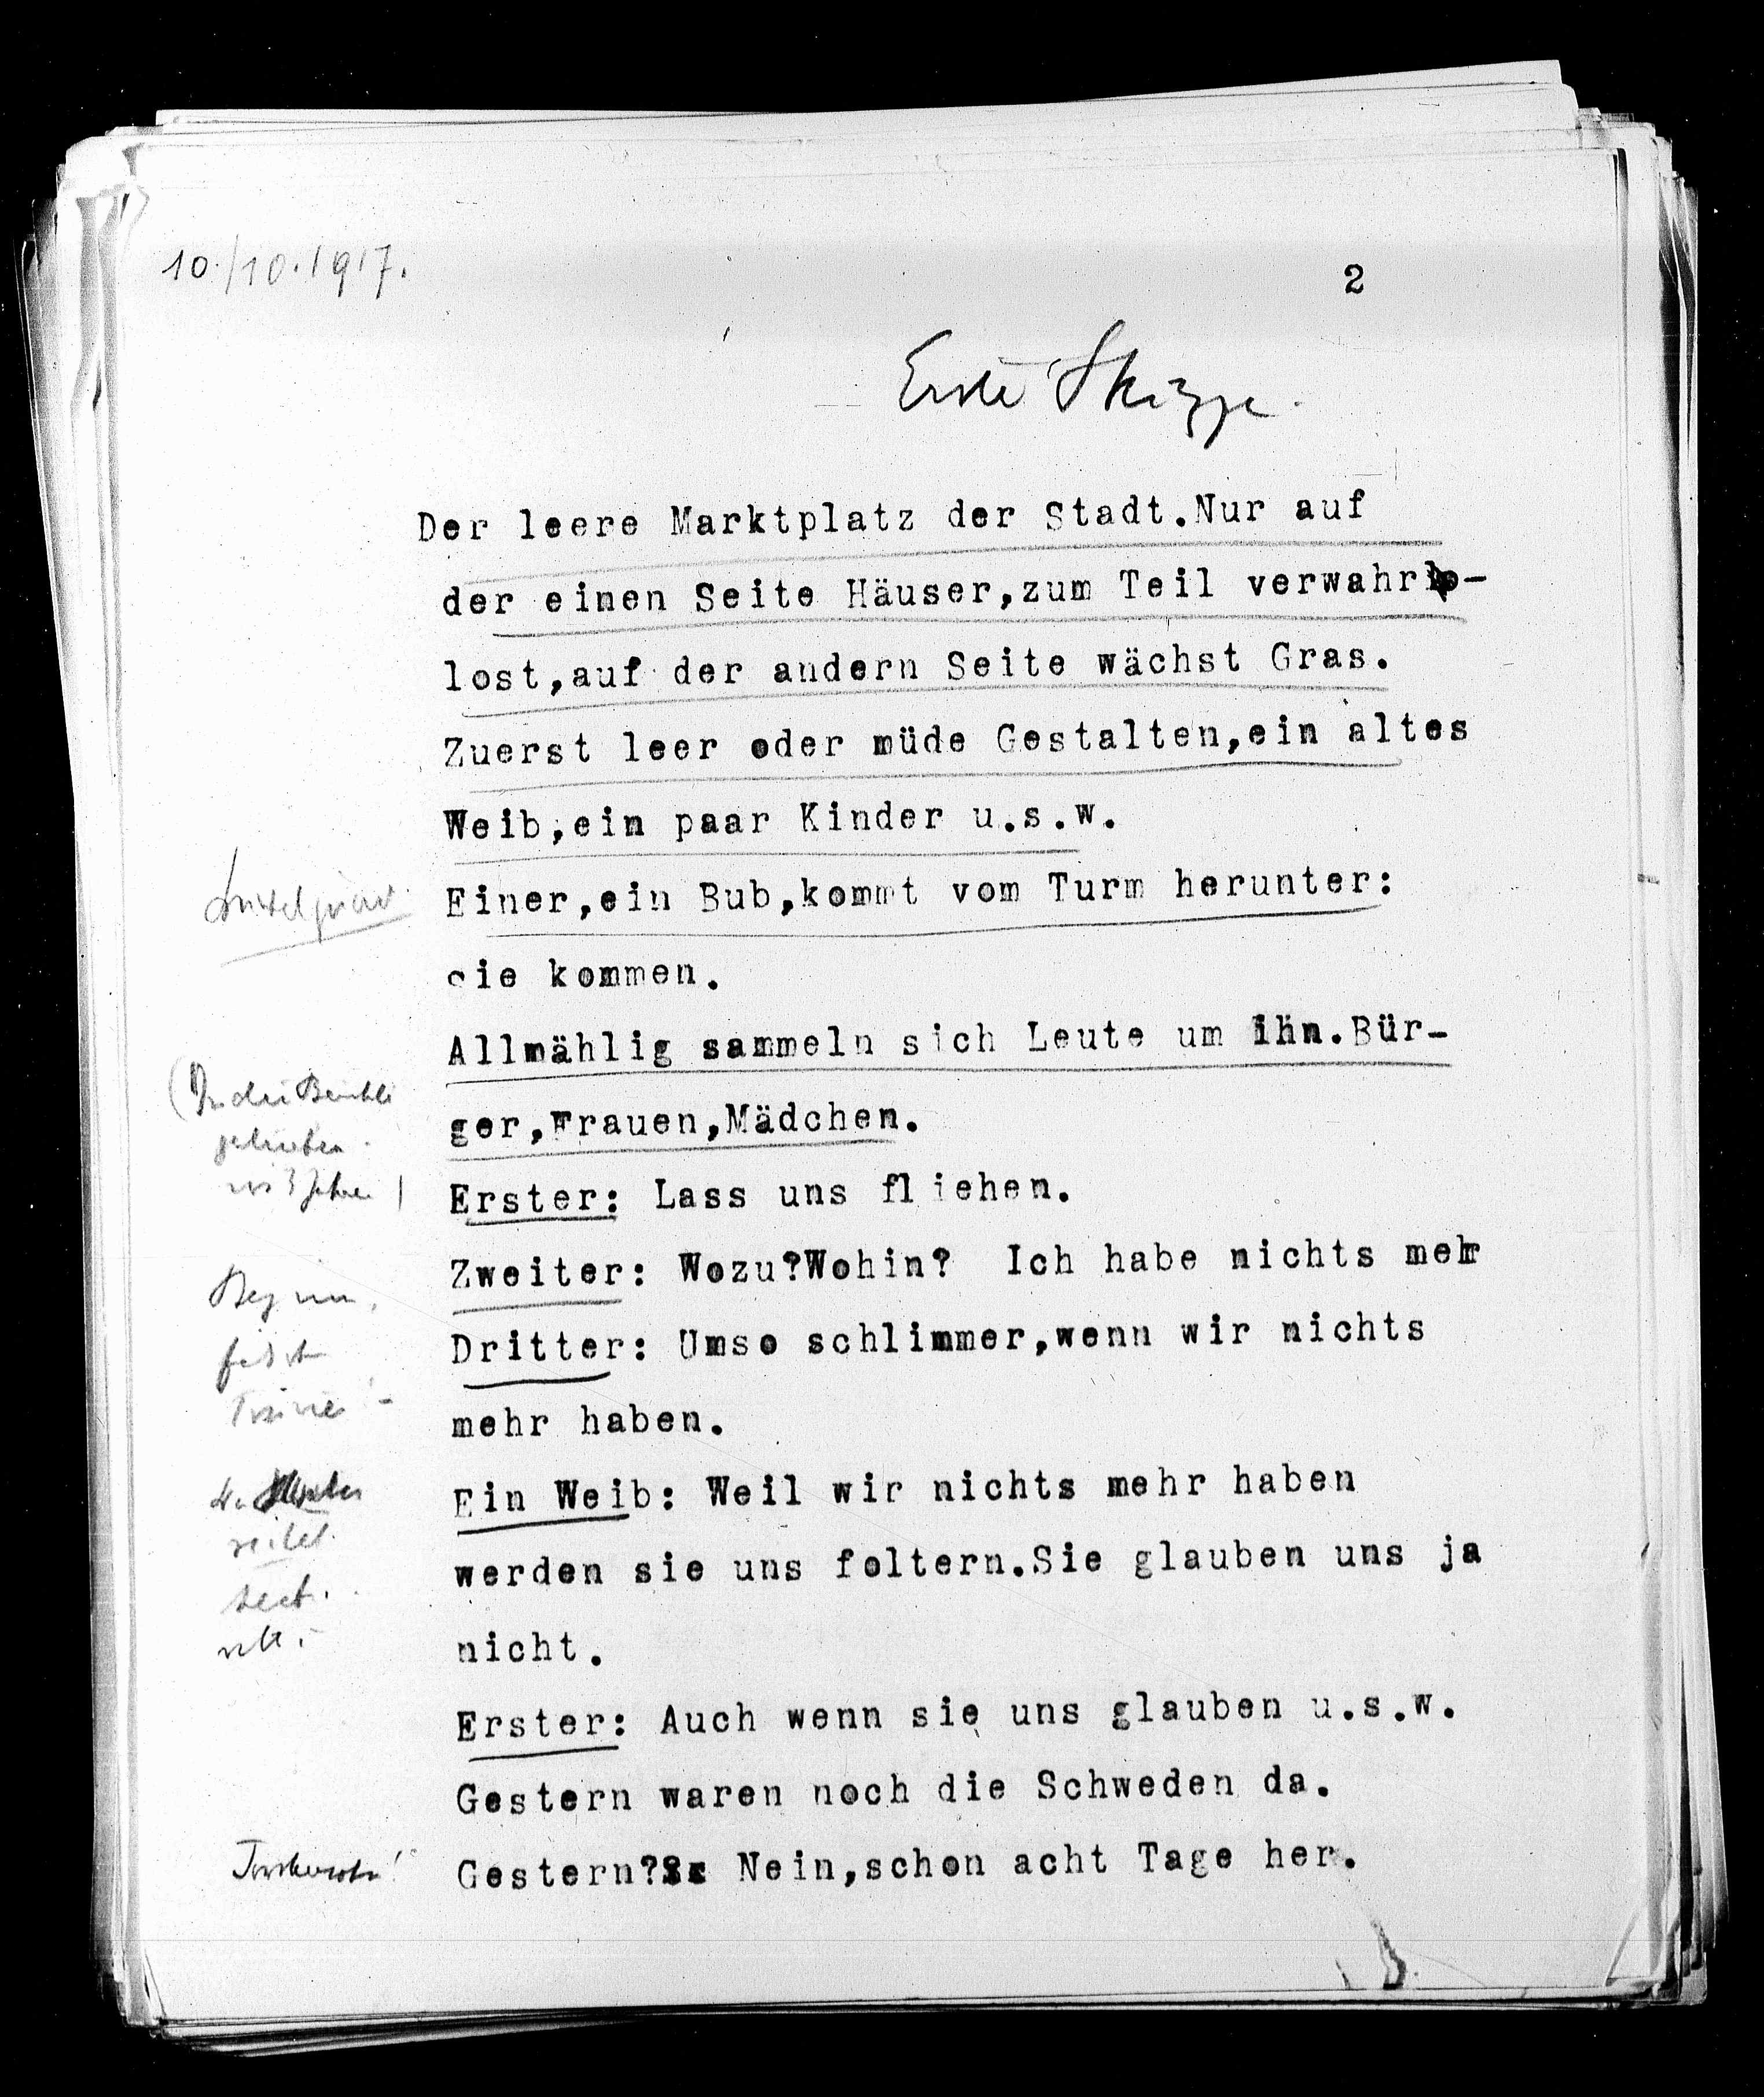 10./10.1917.
2
Erste Skizze.
Der leere Marktplatz der Stadt.Nur auf
der einen Seite Häuser,zum Teil verwahrlo-
lost,auf der andern Seite wächst Gras.
Zuerst leer oder müde Gestalten,ein altes
Weib,ein paar Kinder u.s.w.
Einer,ein Bub,kommt vom Turm herunter:
Sie kommen.
Allmählig sammeln sich Leute um ihn.Bür-
ger,Frauen,Mädchen.
Erster: Lass uns fliehen.
Zweiter: Wozu?Wohin? Ich habe nichts mehr
Dritter: Umso schlimmer,wenn wir nichts
mehr haben.
Ein Weib: Weil wir nichts mehr haben
werden sie uns foltern.Sie glauben uns ja
nicht.
Erster: Auch wenn sie uns glauben u.s.w.
Gestern waren noch die Schweden da.
Gestern? Nein,schon acht Tage her.